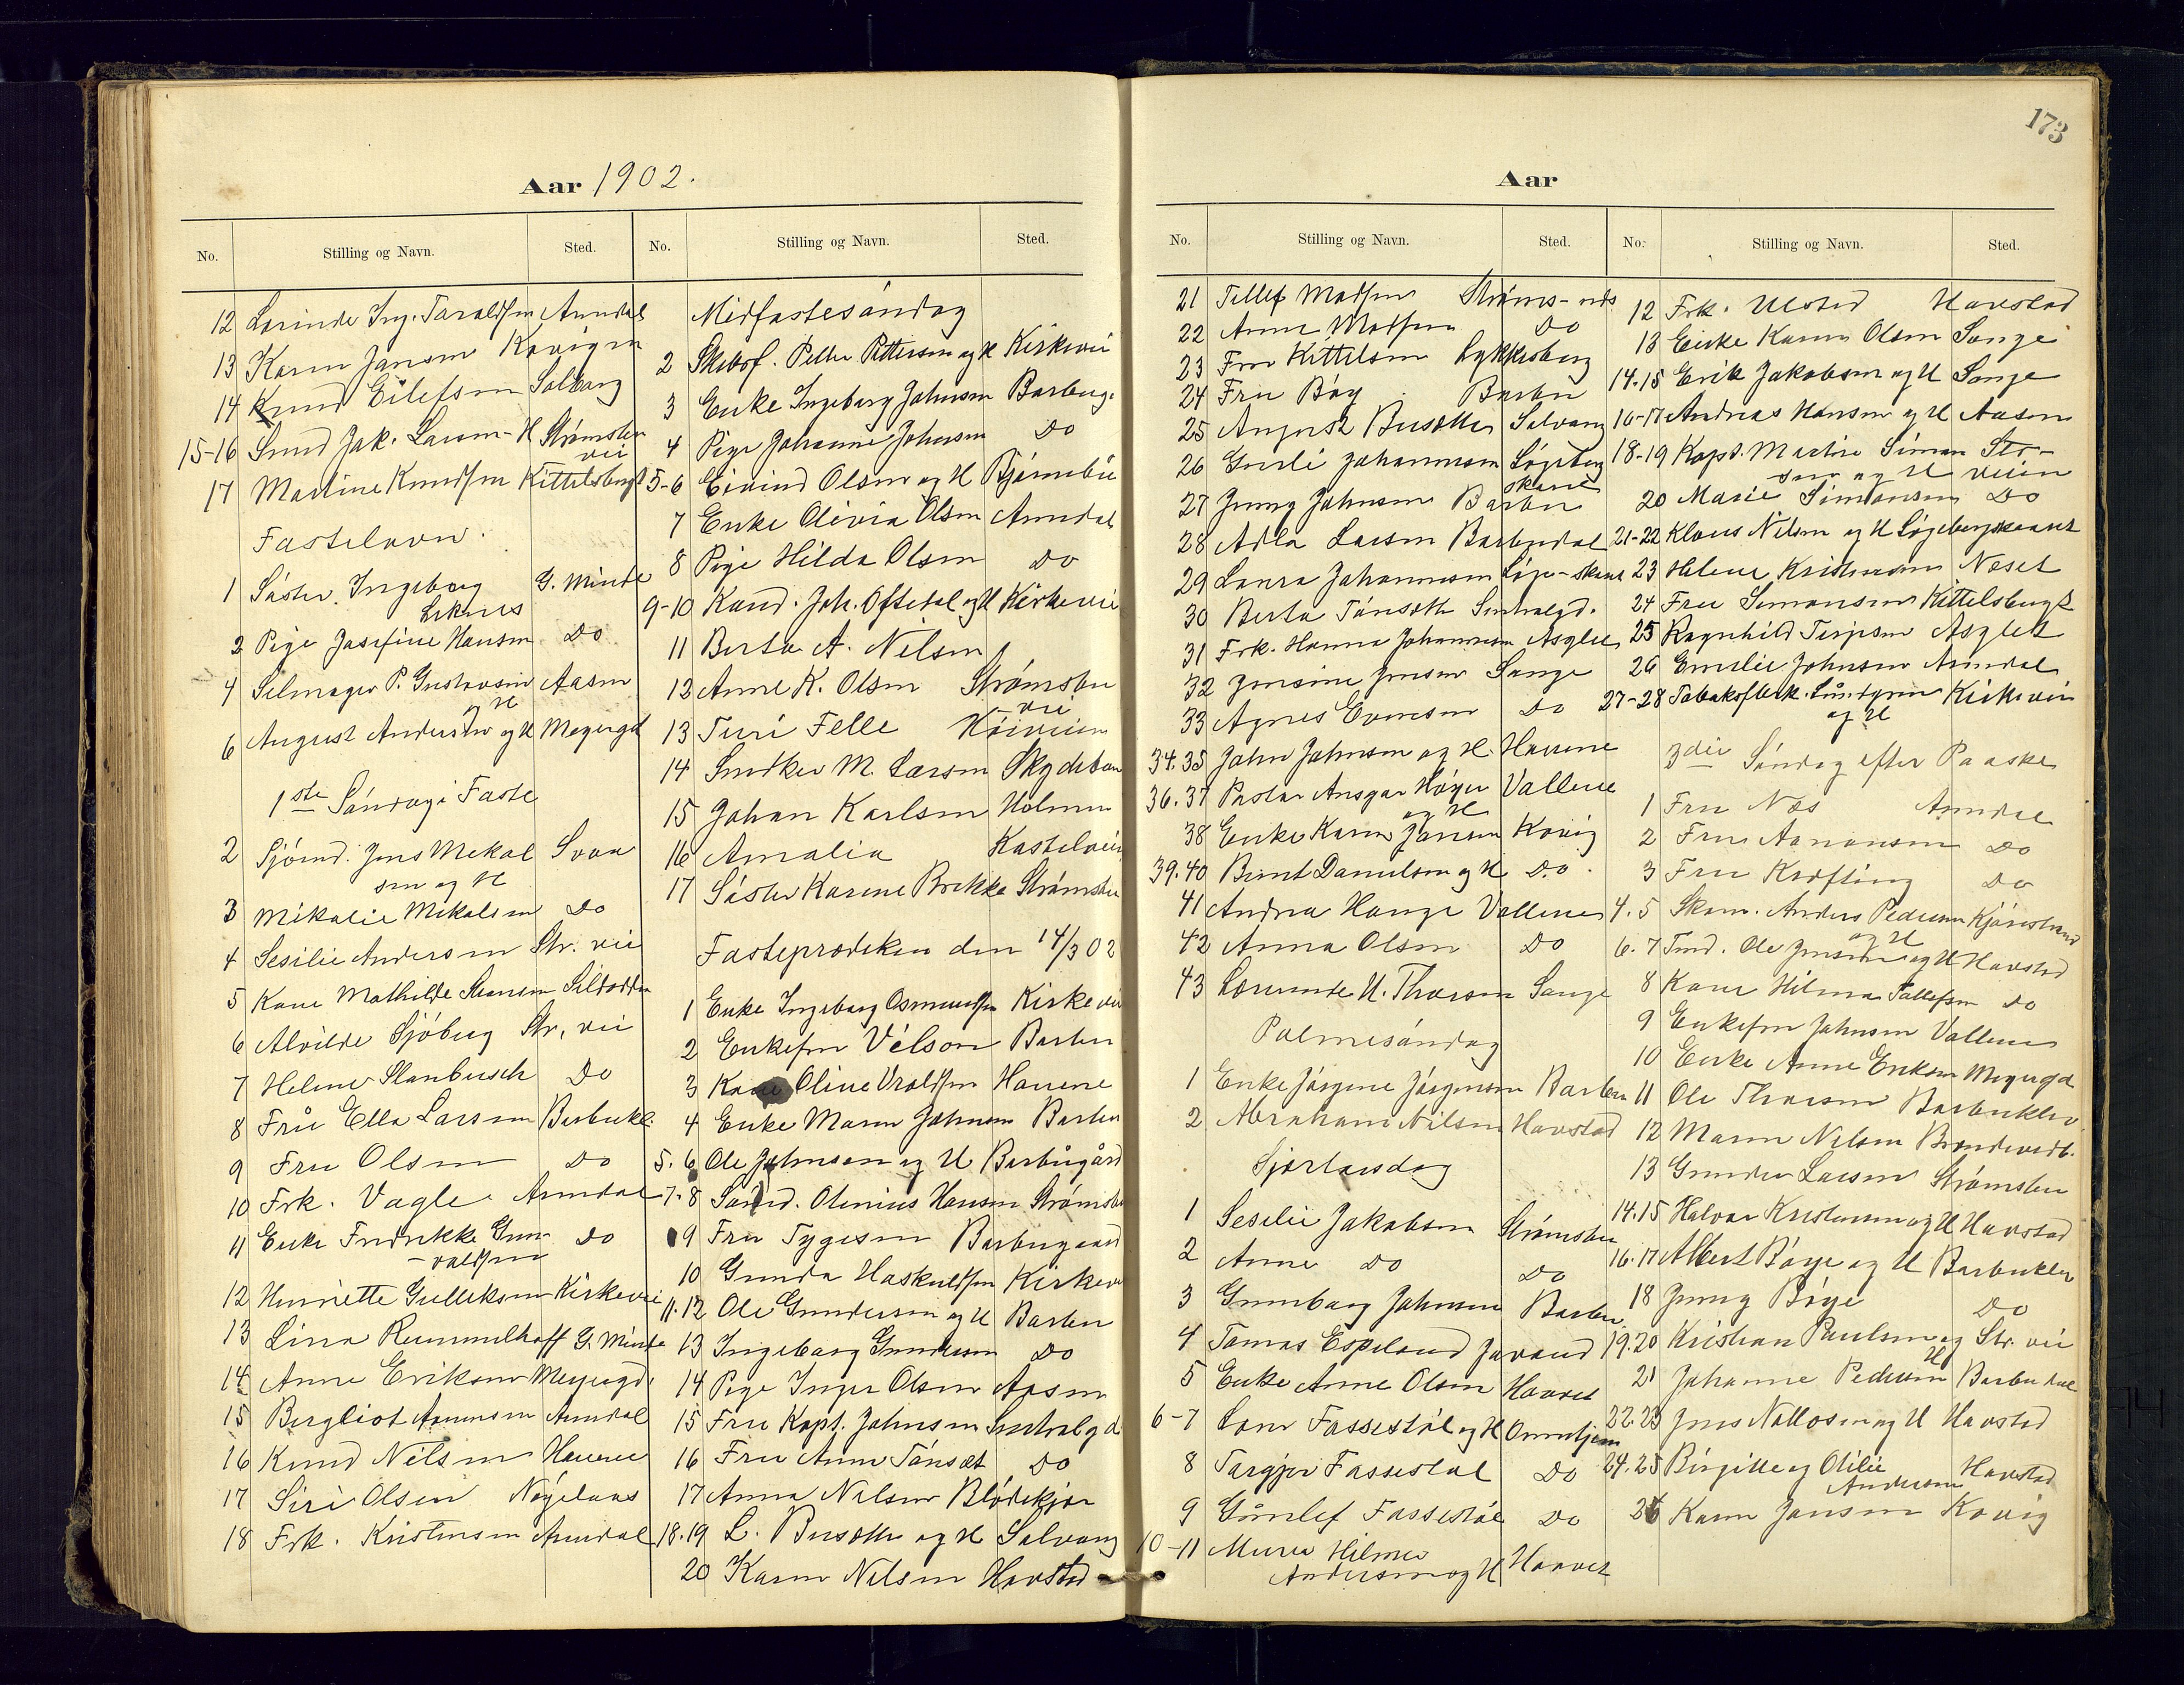 173
Aar 1902.
No. Stilling og Navn. Sted.
12 Larinde Ing. Taraldsen Arendal
13 Karen Jansen Kovigen
14 Knud Eilefsen Solvang
15-16 Smed Jak. Larsen - H Strømsbu
vei
17 Martine Knudsen Kittelsbugt
Fastelavn.
1 Søster Ingeborg G. Minde
Leknes
2 Pige Josefine Hansen Do
4 Selmager P. Gustavsen Aasen
og H
6 August Andersen og H Meyergd
1ste Søndag i Faste
2 Sjømd. Jens Mekal Svaa
sen og H
3 Mikalie Mekalsen Do
4 Sesilie Andersen Str. vei
5 Kone Mathilde Sildodden
6 Alvilde Sjøberg Str. vei
7 Helene Slanbusch Do
8 Frü Ella Larsen Barbukl.
9 Fru Olsen Do
10 Frk. Vagle Arendal
11 Enke Fredrikke Gun- Do
-valdsen
12 Henriette Gulleksen Kirkevei
13 Lina Rummelhoff G. Minde
14 Anne Eriksen Meyergd.
15 Bergliot Aanensen Arendal
16 Knud Nilsen Havene
17 Siri Olsen Nøgelaas
18 Frk. Kristensen Arendal
No. Stilling og Navn. Sted.
Midfastesøndag
2 Skibsf. Peder Pettersen og H Kirkevei
3 Enke Ingeborg Johnsen Barbug.
4 Pige Johanne Johnsen Do
5-6 Eivind Olsen og H Bjørnebü
7 Enke Olivia Olsen Arendal
8 Pige Hilda Olsen Do
9-10 Kand. Joh. Oftedal og H Kirkevei
11 Berta A. Nilsen
12 Anne K. Olsen Strømsbu
-vei
13 Turi Felle Høiveien
14 Snedker M. Larsen Skydeban
15 Johan Karlsen Holmen
16 Amalia Kastelveien
17 Søster Karine Brekke Strømsbu
Fasteprædiken den 14/3 02
1 Enke Ingeborg Osmundsen Kirkevei
2 Enkefru Vélson Barbu
3 Kone Oline Vraldsen Havene
4 Enke Maren Johnsen Barbu
5.6 Ole Johnsen og H Barbugård
7-8 Sømd. Olenius Hansen Strømsbu
9 Fru Tygesen Barbugaard
10 Gunda Haskuldsen Kirkevei
11.12 Ole Gundersen og H Barbu
13 Ingeborg Gundersen Do
14 Pige Inger Olsen Aasen
15 Fru Kapt. Johnsen Sentralgd
16 Fru Anne Tønsæt Do
17 Anna Nilsen Blødekjær
18.19 L. Busæth og H Solvang
20 Karen Nilsen Havstad
Aar
No. Stilling og Navn. Sted.
21 Tellef Madsen Strøms-
22 Anne Madsen Do
23 Fru Kittilsen Lykkesborg
24 Fru Bøy Barbu
25 August Busætter Solvang
26 Gusli Johannesen Løgeberg
skaned
27 Jenny Johnsen Barbu
28 Adla Larsen Barbudal
29 Laura Johannesen Løge-skaned
30 Berta Tønsæth Sentralgd.
31 Frk. Hanna Johannesen Asylet
32 Jensine Jensen Songe
33 Agnes Evensen Do
34.35 John Johnsen og H. Havene
36.37 Pastor Ansgar Høyer Vallene
og H
38 Enke Karen Jansen Kovig
39.40 Bernt Danielsen og H Do.
41 Andrea Hauge Vallene
42 Anna Olsen Do
43 Lærerinde H. Thorsen Songe
Palmesøndag
1 Enke Jørgine Jørgensen Barbu
2 Abraham Nilsen Havstad
Sjærtorsdag
1 Sesilie Jakobsen Strømsbu
2 Anne Do Do
3 Gunborg Johnsen Barbu
4 Tomas Espeland Javand
5 Enke Anne Olsen Haavet
6-7 Lars Fassestøl og H Ormetjern
8 Targjer Fassestøl Do
9 Gunlef Fassestøl Do
10-11 Murer Hilmer Haavet
Andersen og H
No. Stilling og Navn. Sted.
12 Frk. Ulstad Havstad
13 Enke Karen Olsen Songe
14.15 Erik Jakobsen og H Songe
16-17 Andreas Hansen og H Aasen
18-19 Kapt. Martin Simon Str-
sen og H veien
20 Marie Simonsen Do
21-22 Klaus Nilsen og H Løgebergskaanet
23 Helene Kristensen Neset
24 Fru Simonsen Kittelsbugt
25 Ragnhild Terjesen Asylet
26 Emilie Johnsen Arendal
27-28 Tobaksfbrk. Lundgren Kirkevei
og H
3die Søndag efter Paaske
1 Fru Næs Arendal
2 Fru Aanonsen Do
3 Fru Kræfting Do
4.5 Skom. Anders Pedersen Kjørestrand
og H
6.7 Tmd. Ole Jensen og H Havstad
8 Kone Hilma Tallefsen Do
9 Enkefru Johnsen Vallene
10 Enke Anne Eriksen Meyergd
11 Ole Thorsen Barbuklev
12 Maren Nilsen Brændevedb.
13 Gunder Larsen Strømsbu
14.15 Halvor Kristensen og H Havstad
16.17 Albert Bøye og H Barbuklev
18 Jenny Bøye Do
19.20 Kristian Paulsen og Str. vei
H
21 Johanne Pedersen Barbudal
22.23 Jens Nattosen og H Havstad
24.25 Birgitte og Otilie Havstad
Andersen
26 Karen Jansen Kovig